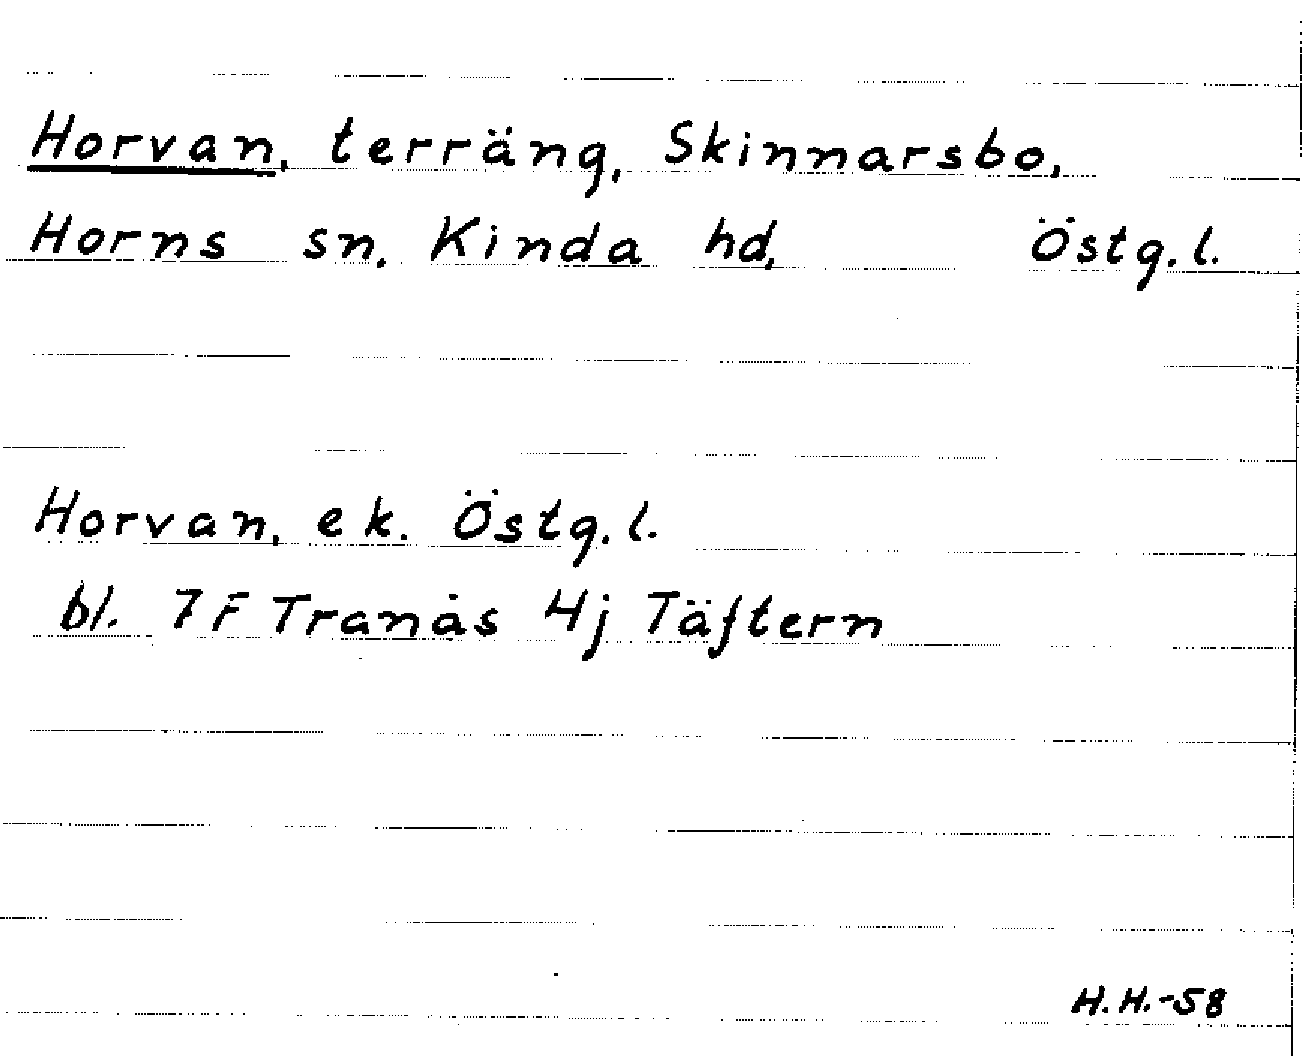 Horvan, terräng, Skinnarsbo,
Horns sn. Kinda hd, Östg. l.
Horvan, ek. Östg. l.
bl. 7 F Tranås 4j Täftern
H.H.-58